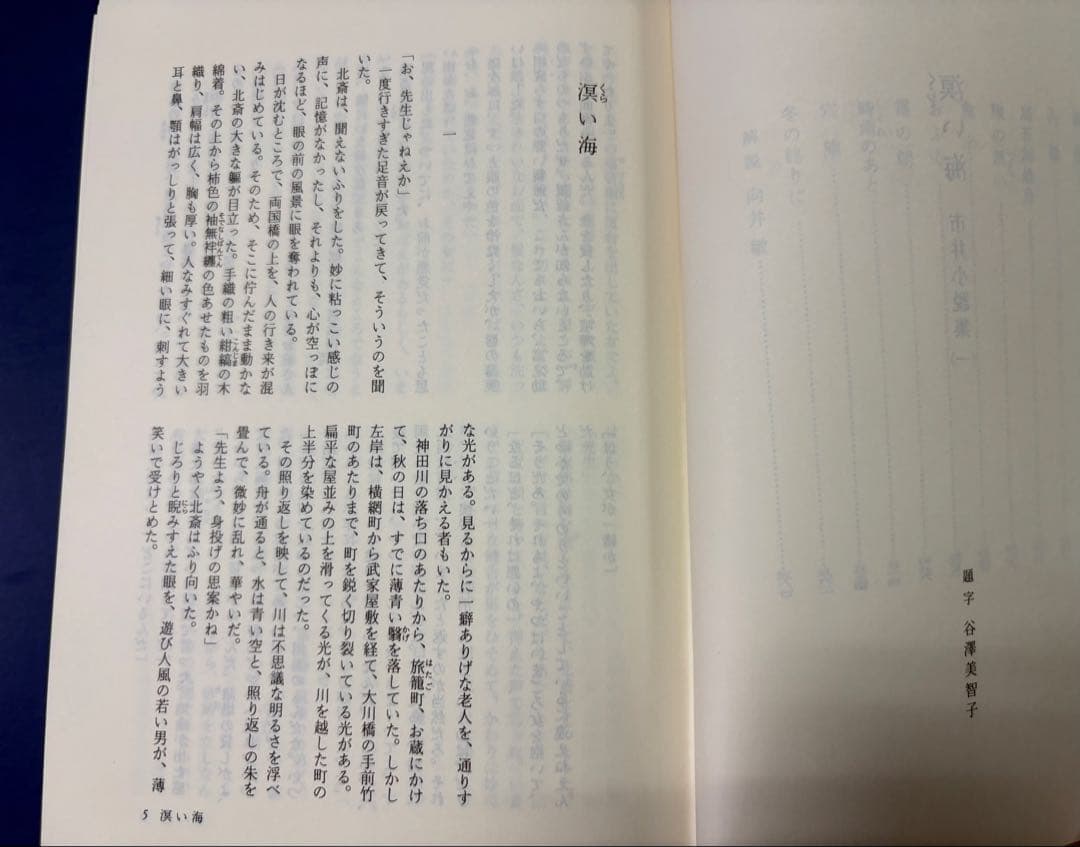 題字 谷澤美智子
溟い海
くら
一
「お、先生じゃねえか」
一度行きすぎた足音が戻ってきて、そういうのを聞
いた。
北斎は、聞えないふりをした。妙に粘っこい感じの
声に、記憶がなかったし、それよりも、心が空っぽに
なるほど、眼の前の風景に眼を奪われている。
日が沈むところで、両国橋の上を、人の行き来が混
みはじめている。そのため、そこに佇んだまま動かな
い、北斎の大きな軀が目立った。手織の粗い紺縞の木
こんじま
綿着。その上から柿色の袖無袢纏の色あせたものを羽
そでなしばんてん
織り、肩幅は広く、胸も厚い。人なみすぐれて大きい
耳と鼻、顎はがっしりと張って、細い眼に、刺すよう
な光がある。見るからに一癖ありげな老人を、通りす
がりに見かえる者もいた。
神田川の落ち口のあたりから、旅籠町、お蔵にかけ
はたご
て、秋の日は、すでに薄青い翳を落していた。しかし
かげ
左岸は、横網町から武家屋敷を経て、大川橋の手前竹
町のあたりまで、町を鋭く切り裂いている光がある。
扁平な屋並みの上を滑ってくる光が、川を越した町の
上半分を染めているのだった。
その照り返しを映して、川は不思議な明るさを浮べ
ている。舟が通ると、水は青い空と、照り返しの朱を
畳んで、微妙に乱れ、華やいだ。
「先生よう、身投げの思案かね」
ようやく北斎はふり向いた。
じろりと睨みすえた眼を、遊び人風の若い男が、薄
にら
笑いで受けとめた。
5 溟い海